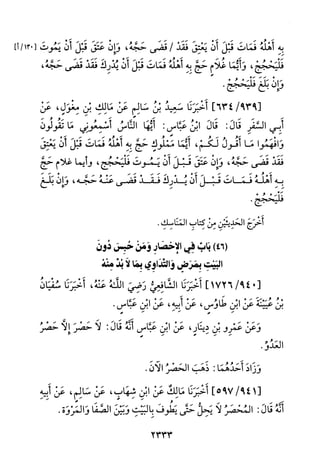 بِهِ أَهْلُهُ فَمَاتَ قَبْلَ أَنْ يَعْتِقَ فَقَدْ / قَضَى حَجَّهُ، وَإِنْ عَتَقَ قَبْلَ أَنْ يَمُوتَ [١٣٠/أ]
فَلْيَحْجُجْ، وَأَيُّمَا غُلَامٍ حَجَّ بِهِ أَهْلُهُ فَمَاتَ قَبْلَ أَنْ يُدْرِكَ فَقَدْ قَضَى حَجَّهُ،
وَإِنْ بَلَغَ فَلْيَحْجُجْ.
[٦٣٤/٩٣٩] أَخْبَرَنَا سَعِيدُ بْنُ سَالِمٍ عَنْ مَالِكِ بْنِ مِغْوَلٍ، عَنْ
أَبِي السَّفَرِ قَالَ: قَالَ ابْنُ عَبَّاسٍ: أَيُّهَا النَّاسُ أَسْمِعُونِي مَا تَقُولُونَ
وَافْهَمُوا مَا أَقُولُ لَكُمْ، أَيُّمَا مَمْلُوكٍ حَجَّ بِهِ أَهْلُهُ فَمَاتَ قَبْلَ أَنْ يَعْتِقَ
فَقَدْ قَضَى حَجَّهُ، وَإِنْ عَتَقَ قَبْلَ أَنْ يَمُوتَ فَلْيَحْجُجْ، وأيما غلام حج
بِهِ أَهْلُهُ فَمَاتَ قَبْلَ أَنْ يُدْرِكَ فَقَدْ قَضَى عَنْهُ حَجَّه، وَإِنْ بَلَغَ
فَلْيَحْجُجْ.
أَخْرَجَ الْحَدِيثَيْنِ مِنْ كِتَابِ الْمَنَاسِكِ.
(٤٦) بَابٌ فِي الْإِحْصَارِ وَمَنْ حُبِسَ دُونَ
الْبَيْتِ بِمَرَضٍ وَالتَّدَاوِي بِمَا لَا بُدَّ مِنْهُ
[١٧٢٦/٩٤٠] أَخْبَرَنَا الشَّافِعِيُّ رَضِيَ اللَّهُ عَنْهُ، أَخْبَرَنَا سُفْيَانُ
بْنُ عُيَيْنَةَ عَنْ ابْنِ طَاوُسٍ، عَنْ أَبِيهِ، عَنْ ابْنِ عَبَّاسٍ.
وَعَنْ عَمْرِو بْنِ دِينَارٍ، عَنْ ابْنِ عَبَّاسٍ أَنَّهُ قَالَ: لَا حَصْرَ إِلَّا حَصْرُ
الْعَدُوِّ.
وَزَادَ أَحَدُهُمَا: ذَهَبَ الْحَصْرُ الْآنَ.
[٥٩٧/٩٤١] أَخْبَرَنَا مَالِكٌ عَنْ ابْنِ شِهَابٍ، عَنْ سَالِمٍ، عَنْ أَبِيهِ
أَنَّهُ قَالَ: الْمُحْصَرُ لَا يَحِلُّ حَتَّى يَطُوفَ بِالْبَيْتِ وَبَيْنَ الصَّفَا وَالْمَرْوَةِ.
٢٣٣٣